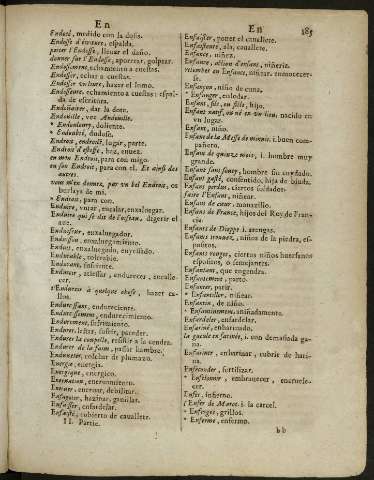 En
En
185
Endosé, medido con la dosis.
Endosse d'escriture, espalda.
porter l'Endosse, llevar el daño.
donner sur l'Endosse, aporrear, golpear.
Endossement, echamiento a cuestas.
Endosser, echar a cuestas.
Endosser un livre, hazer el lomo.
Endosseure, echamiento a cuestas: espalda
de escritura.
Endoüairer, dar la dote.
Endouille, voy Andouille.
* Endouloury, doliente.
* Endoubté, dudoso.
Endroit, endroict, lugar, parte.
Endroit d'estoffe, haz, anuez.
en mon Endroit, para con migo.
en son Endroit, para con el. Et ainsi des
autres.
burlara de mi.
* Endroit, para con.
Enduire, untar, encalar, enxaluegar.
Enduire qui se dit de l'oiseau, digerir el
ave.
Enduiseur, enxaluegador.
Enduisson, enxaluegamiento.
Enduit, enxaluegado, enyessado.
Endurable, tolerable.
Endurant, sufriente.
Endurcir, atiessar, endurecer, encallecer.
s'Endurcir à quelque chose, hazer callos.
Endurcissant, endureciente.
Endurcissement, endurecimiento.
Endurement, sufrimiento.
Endurer, lastar, sufrir, padecer.
Endurer la coupelle, resistir a la cendra.
Endurer de la faim, passar hambre.
Enduueter, colchar de plumazo.
Energie, energia.
Energique, energico.
Enervation, enervamiento.
Enerver, enervar, debilitar.
Enfaisseler, enfardelar.
Enfaisté, cubierto de cavallete.
II. Partie.
Enfaister, poner el cauallete.
Enfaisteure, ala, cauallete.
Enfance, niñez.
Enfance, action d'enfant, niñeria.
retomber en Enfance, niñear, enmocecerse.
Enfançon, niño de cuna.
* Enfanger, enlodar.
Enfant, fils, ou fille, hijo.
Enfant natif, ou né en un lieu, nacido en
vn lugar.
Enfant, niño.
Enfant de la Messe de minuit. i. buen compañero.
Enfant de quinze mois, i. hombre muy
grande.
Enfant sans soucy, hombre sin cuydado.
Enfant gasté, consentido, hija de biuda.
Enfans perdus, ciertos soldados.
faire l'Enfant, niñear.
Enfant de cœur, monazillo.
Enfans de France, hijos del Rey de Francia.
Enfants de Diogge i. arengas.
Enfants trouuez, niños de la piedra, espolitos.
Enfants rouges, ciertos niños huerfanos
espolitos o semejantes.
Enfantant, que engendra.
Enfantement, parto.
Enfanter, parir.
* Enfantiller, niñear.
Enfantin, de niño.
* Enfantinement, aniñadamente.
Enfardeler, enfardelar.
Enfariné, enharinado.
la gueule enfarinée, i. con demasiada gana.
Enfariner, enharinar, cubrir de harina.
Enfeconder, fertilizar.
Enfer, infierno.
l'Enfer de Marot. i. la carcel.
* Enferges, grillos.
* Enferme, enfermo.
bb